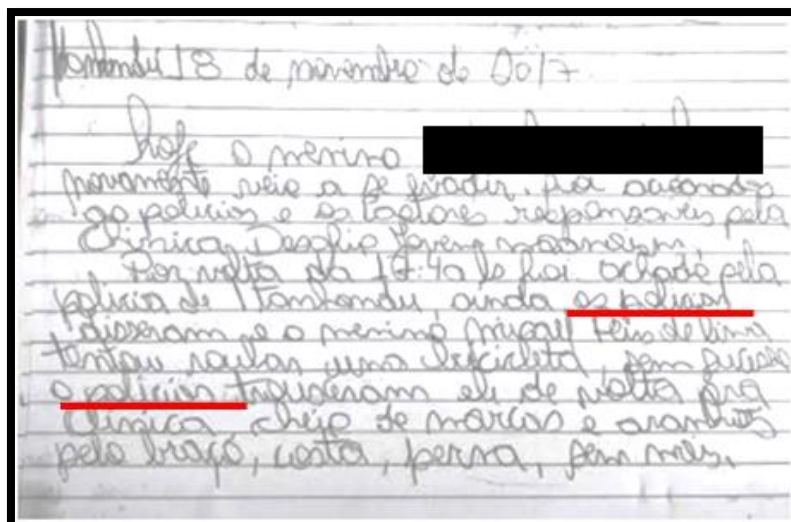 Itanhandu 18 de novembro de 2017
hoje o menino
novamente veio a se evadir. foi acionado
os policias e os tostores responsaveis pela
Clinica Desafio Jovem maanaim
Por volta da 17:40 le foi achado pela
policia de Itanhandu, ainda os policias
disseram e o menino
tentou roubar uma bicicleta, sem suceso
o policias trouxeram ele de volta pra
Clinica cheio de marcas e aranhões
pelo braço, costa, perna, sem mais.